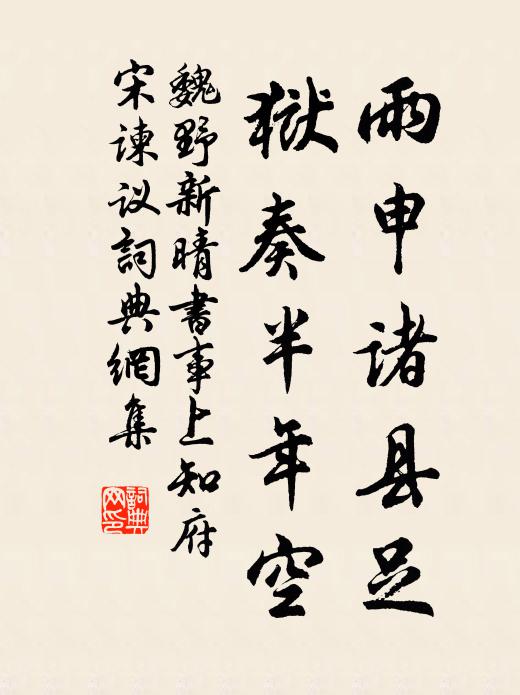 雨申诸县足
狱奏半年空
魏野新晴書事上知府
宋谏议詞典網集
詞典网印